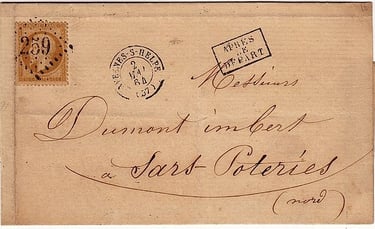 259
AVESNES-S-HELPE
2
MAI
64
(57)
APRÈS
LE
DÉPART
Messieurs
Dumont imbert
a Sars Poteries
(nord)